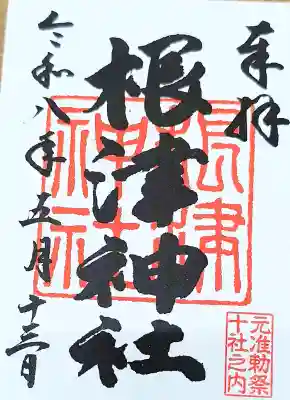 奉拝
根津神社
令和八年五月十三日
根津
神社
元准勅祭
十社之内